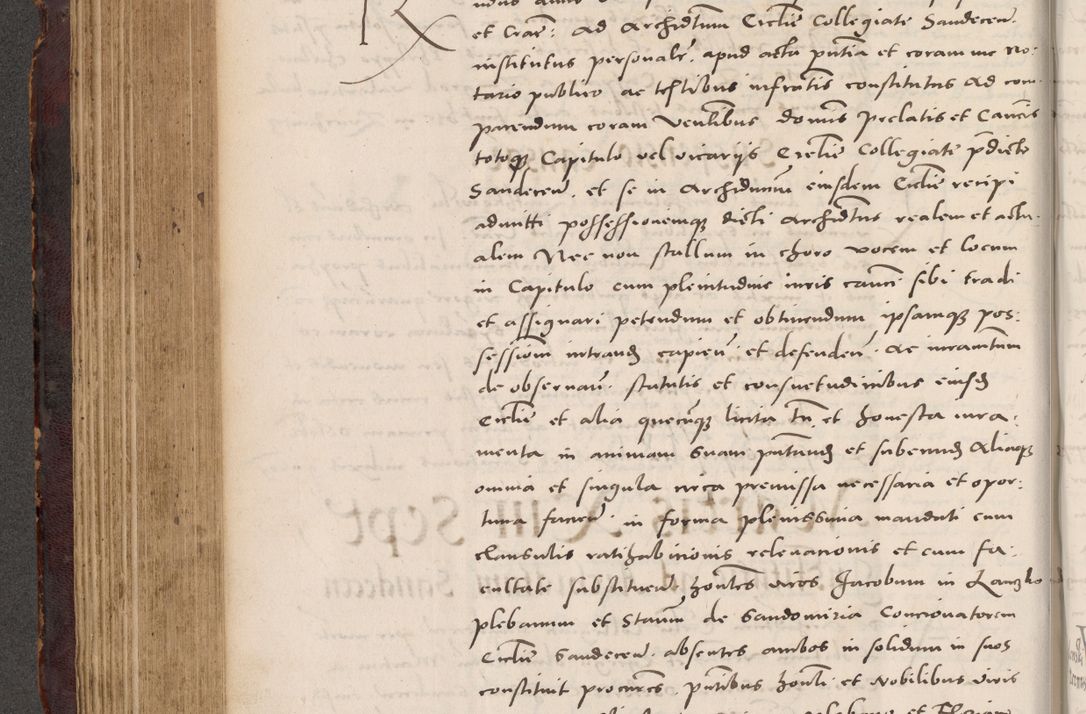 et Craco: Ad Archidtum Ecclie Collegiate Sandecen
institutus personalr. apud acta pntia et coram me no:
tario publico ac testibus infratis constitutus Ad com
parendum coram Venlibus domis prelatis et Canois
totoq Capitulo vel vicarijs Ecclie Collegiate pdicte
Sandecen. et se in Archidnum eiusdem Ecclie recipi
admitti possessionemq dicti Archidtus realem et actu.
alem Nec non stallum in choro vocem et locum
in Capitulo cum plenitudine iuris canci sibi tradi
et assignari petendum et obtinendum ipsamq pos:
sessiom intrand capien. et defenden. Ac iuramtum
de observan. statutis et consuetudinibus eiusd
Ecclie et alia quecunq licita tn et honesta iura:
menta in animam suam pntand et subeund Aliaq
omnia et singula circa premissa necessaria et opor:
tuna facien. in forma plenissima mandati cum
clausulis ratihabitionis relevationis et cum fa:
cultate substituen. honles viros Jacobum in Lanczko
plebanum et Staum de Sandomiria Concionatorem
Ecclie Sandecen. absentes ambos in solidum in suos
constituit procures. pntibus honli et Nobilibus viris